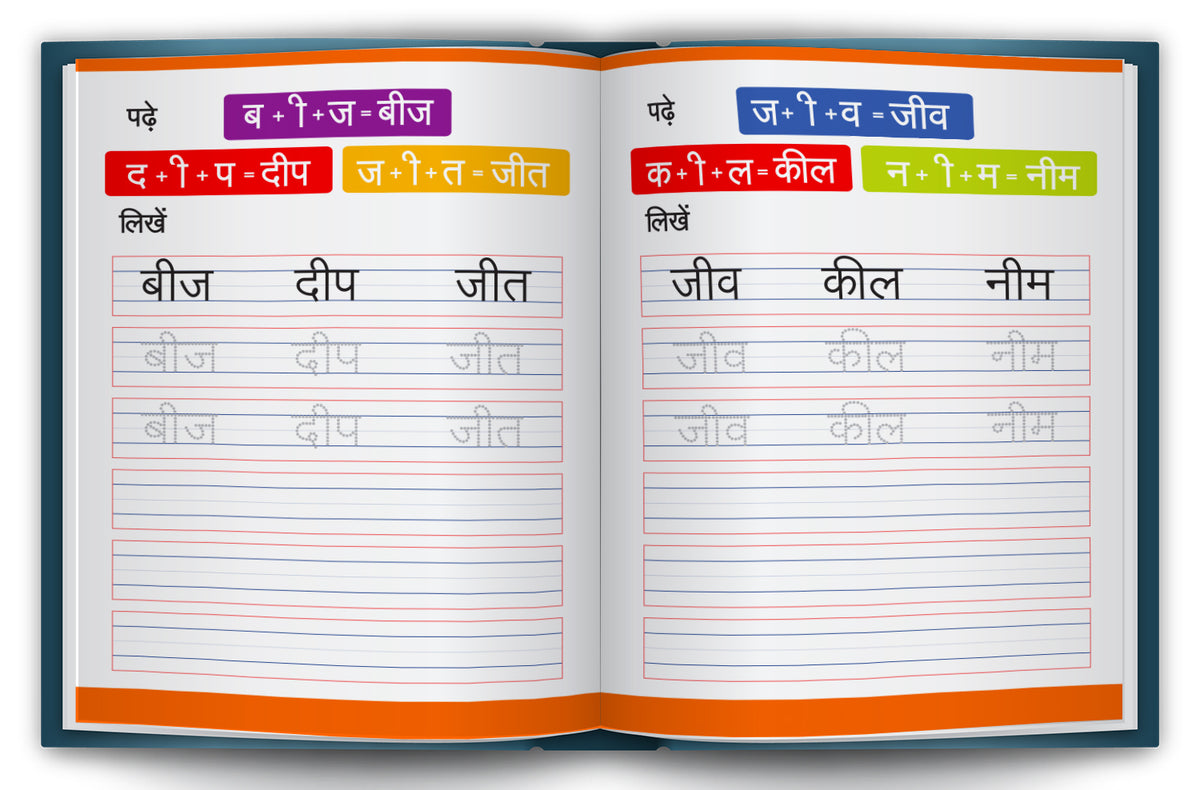 पढ़े
ब + ी + ज = बीज
द + ी + प = दीप
ज + ी + त = जीत
लिखें
बीज दीप जीत
बीज दीप जीत
बीज दीप जीत
पढ़े
ज + ी + व = जीव
क + ी + ल = कील
न + ी + म = नीम
लिखें
जीव कील नीम
जीव कील नीम
जीव कील नीम